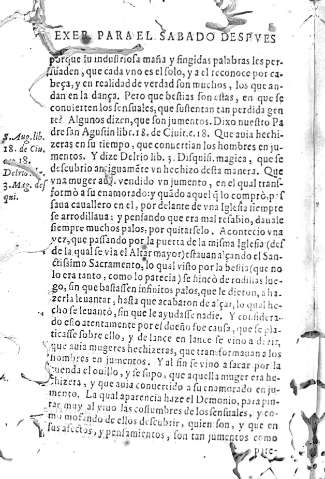 EXER. PARA EL SABADO DESPVES
porque tu industriosa maña y fingidas palabras les per-
suaden, que cada vno es el solo, y a el reconoce por ca-
beça, y en realidad de verdad son muchos, los que an-
dan en la dança. Pero que bestias son estas, en que se
conuierten los sensuales, que sustentan tan perdida gen
te? Algunos dizen, que son jumentos. Dixo nuestro Pa
dre san Agustin libr. 18. de Ciuit. c. 18. Que auia hechi-
zeras en su tiempo, que conuertian los hombres en ju-
mentos. Y dize Delrio lib. 3. Disquis. magica, que se
descubrio antiguamēte vn hechizo desta manera. Que
vna muger auia vendido vn jumento, en el qual trans-
formò a su enamorado: y quādo aquel q̃ lo comprò, pas-
saua cauallero en el, por delante de vna Iglesia siempre
se arrodillaua: y pensando que era mal resabio, dauale
siempre muchos palos, por quitarselo. Acontecio vna
vez, que passando por la puerta de la misma Iglesia (des
de la qual se via el Altar mayor) estauan alçando el San-
ctissimo Sacramento, lo qual visto por la bestia (que no
lo era tanto, como lo parecia) se hincò de rodillas lue-
go, sin que bastassen infinitos palos, que le dieron, a ha-
zerla leuantar, hasta que acabaron de alçar, lo qual he-
cho se leuantó, sin que le ayudasse nadie. Y considera-
do esto atentamente por el dueño fue causa, que se pla-
ticasse sobre ello, y de lance en lance se vino a dezir,
que auia mugeres hechizeras, que transformauan a los
hombres en jumentos. Y al fin se vino a sacar por la
el ouillo, y se supo, que aquella muger era he-
chizera, y que auia conuertido a su enamorado en ju-
mento. La qual aparencia haze el Demonio, para pin-
tar muy al viuo las costumbres de los sensuales, y co-
mo mofando de ellos descubrir, quien son, y que en
sus afectos, y pensamientos, son tan jumentos como
pue-
S. Aug. lib.
18. de Ciu.
c. 18.
Delrio.
3. Mag. dis
qui.